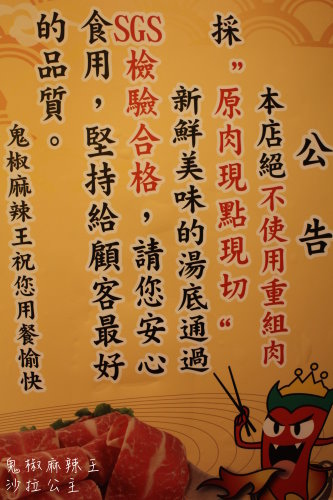 公告
本店絕不使用重組肉
採"原肉現點現切"
新鮮美味的湯底通過
SGS檢驗合格，請您安心
食用，堅持給顧客最好
的品質。
鬼椒麻辣王祝您用餐愉快
鬼椒麻辣王
沙拉公主